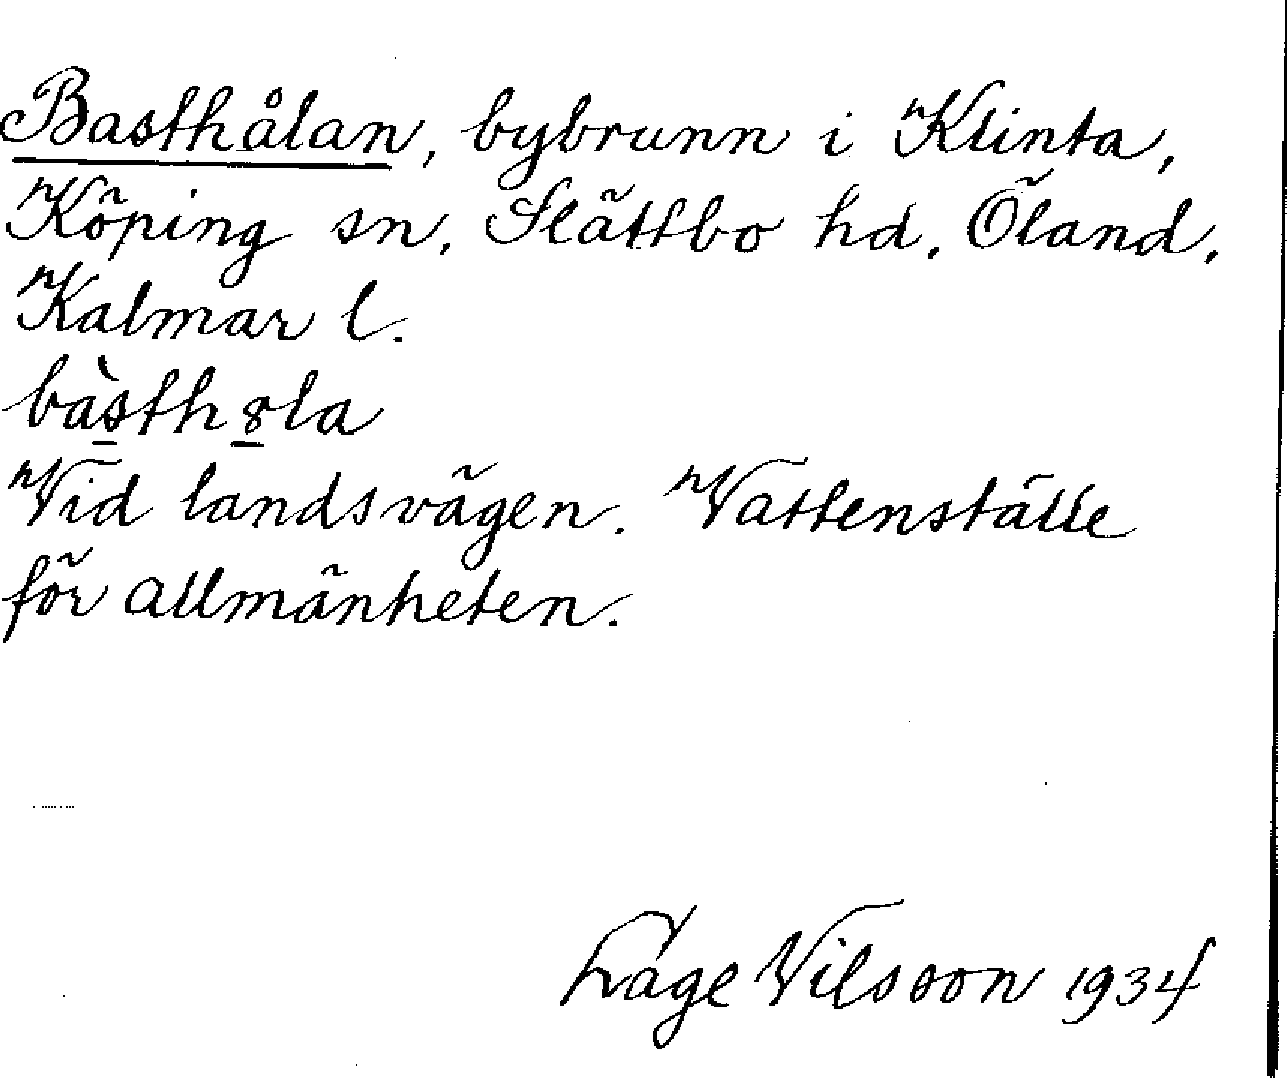 Basthålan, bybrunn i Klinta,
Köping sn, Slättbo hd, Öland,
Kalmar l.
bàs̲th8̲la
Vid landsvägen. Vattenställe
för allmänheten.
Låge Nilsson 1934